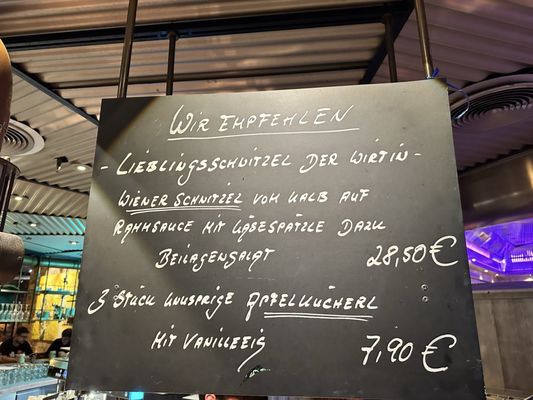 WIR EMPFEHLEN
- LIEBLINGSSCHNITZEL DER WIRTIN -
WIENER SCHNITZEL VOM KALB AUF
RAHMSAUCE MIT KÄSESPÄTZLE DAZU
BEILAGENSALAT 28,50 €
3 STÜCK KNUSPRIGE APFELKÜCHERL
MIT VANILLEEIS 7,90 €